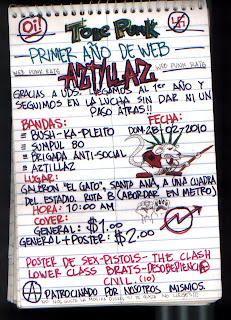 Oi!
Toke Punk
PRIMER AÑO DE WEB
WEB PUNK RATG
WEB PUNK RATG
AZTYLLAZ
GRACIAS A UDS. LLEGAMOS AL 1er AÑO Y
SEGUIMOS EN LA LUCHA SIN DAR NI UN
PASO ATRAS!!
BANDAS:
FECHA:
BUSH-KA-PLEITO
DOM-28-02-2010
SUMPUL 80
BRIGADA ANTI-SOCIAL
AZTILLAZ
LUGAR:
GALERON "EL GATO", SANTA ANA, A UNA CUADRA
DEL ESTADIO. RUTA 8 (ABORDAR EN METRO)
HORA: 10:00 AM
COVER:
GENERAL: $1.00
GENERAL+POSTER: $2.00
POSTER DE SEX-PISTOLS- THE CLASH
LOWER CLASS BRATS-DESOBEDIENCIA
CIVIL. (10)
PATROCINADO POR NOSOTROS MISMOS.